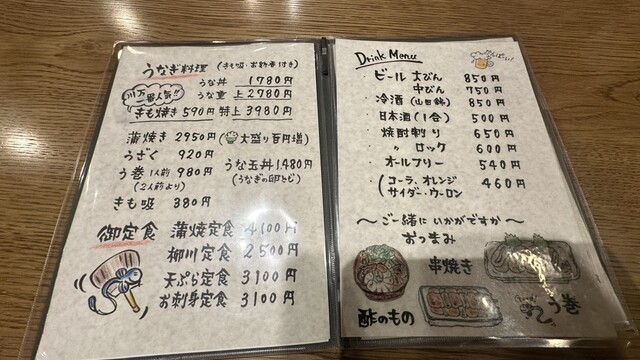 うなぎ料理 (きも吸・お新香付き)
うな丼 1780円
うな重 上 2780円
特上 3980円
川万一番人気!!
きも焼き 590円
蒲焼き 2950円 (大盛り百円増)
うざく 920円
う巻 1人前 980円
(2人前より)
うな玉丼 1.480円
(うなぎの卵とじ)
きも吸 380円
御定食 蒲焼定食 4100円
柳川定食 2500円
天ぷら定食 3100円
お刺身定食 3100円
Drink Menu
・ビール 大びん 850円
中びん 750円
・冷酒 (山田錦) 850円
・日本酒 (1合) 500円
・焼酎割り 650円
〃 ロック 600円
・オールフリー 540円
・コーラ、オレンジ 460円
サイダー、ウーロン
〜ご一緒にいかがですか〜
おつまみ
串焼き
酢のもの
う巻